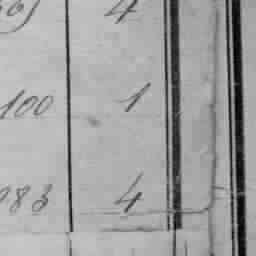 4
100 1
983 4